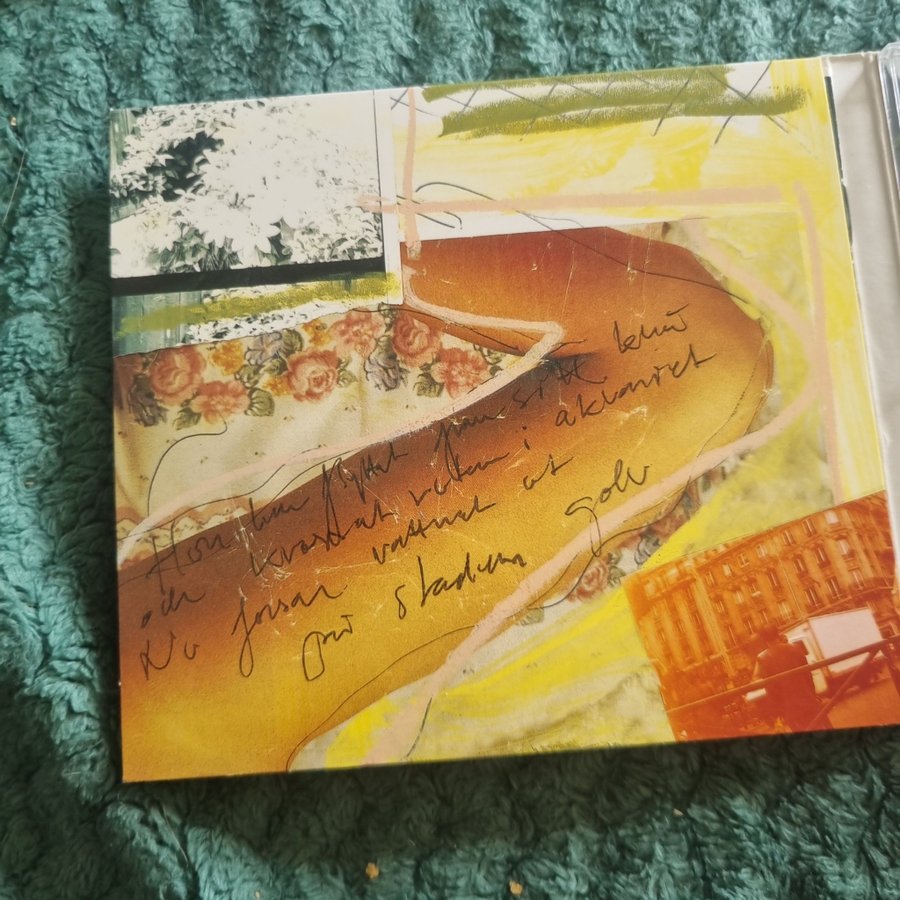 Hon har flyttat från sitt
och krossat rutan i akvariet
Nu forsar vattnet ut
på stadens golv